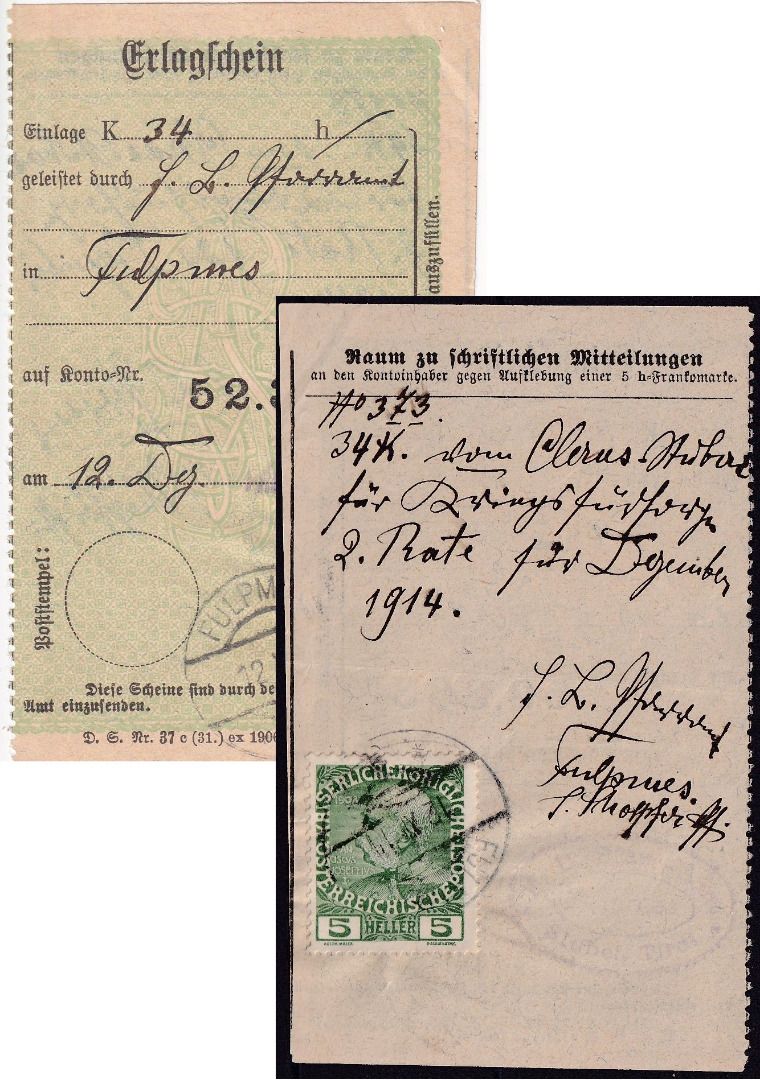 Erlagschein
Einlage K 34 h
geleistet durch f. b. Pfarramt
in Fulpmes
auszufüllen.
auf Konto-Nr.
52.3
am 12. Dez.
Poststempel:
FULPM
12.
Diese Scheine sind durch de
Amt einzusenden.
D. S. Nr. 37 c (31.) ex 1906
Raum zu schriftlichen Mitteilungen
an den Kontoinhaber gegen Aufklebung einer 5 h-Frankomarke.
No 373
34 K. vom Clerus Stubai
für Kriegsfürsorge
2. Rate für Dezember
1914.
f. b. Pfarramt
Fulpmes.
KAISERLICHE KÖNIGLICHE
ÖSTERREICHISCHE POST
5 HELLER 5
FUL
Stubai, Tirol